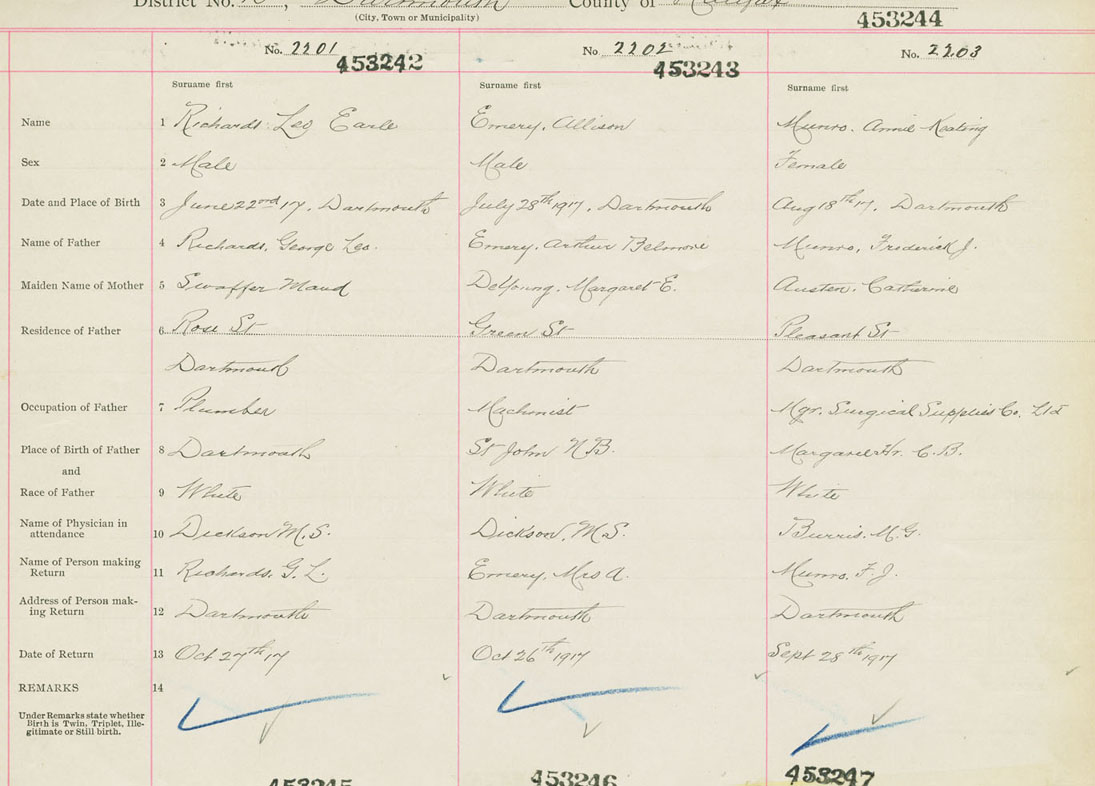 District No. , Dartmouth County of Halifax
(City, Town or Municipality)
453244
No. 2201 No. 2202 No. 2203
453242 453243
Surname first Surname first Surname first
Name 1 Richards Leo Earle Emery, Allison Munro. Annie Keating
Sex 2 Male Male Female
Date and Place of Birth 3 June 22nd 17, Dartmouth July 28th 1917, Dartmouth Aug 18th 17, Dartmouth
Name of Father 4 Richards, George Leo. Emery, Arthur Belmore Munro, Frederick J.
Maiden Name of Mother 5 Swaffer Maud DeYoung, Margaret E. Austen, Catherine
Residence of Father 6 Rose St Green St Pleasant St
Dartmouth Dartmouth Dartmouth
Occupation of Father 7 Plumber Machinist Mgr. Surgical Supplies Co. Ltd
Place of Birth of Father 8 Dartmouth St John N.B. Margaree Hr. C.B.
and
Race of Father 9 White White White
Name of Physician in
attendance 10 Dickson M.S. Dickson, M.S. Burris. M.G.
Name of Person making
Return 11 Richards, G.L. Emery, Mrs A. Munro. F.J.
Address of Person mak-
ing Return 12 Dartmouth Dartmouth Dartmouth
Date of Return 13 Oct 27th 17 Oct 26th 1917 Sept 28th 1917
REMARKS 14
Under Remarks state whether
Birth is Twin, Triplet, Ille-
gitimate or Still birth.
453245 453246 453247